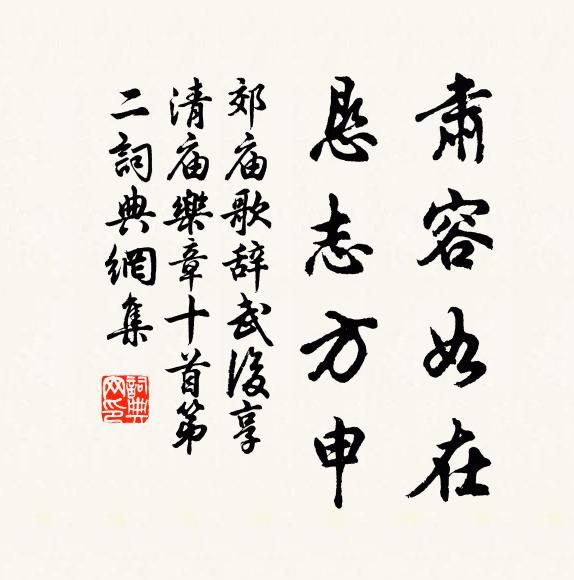 肅容如在
恳志方申
郊庙歌辞武後享
清庙樂章十首第
二詞典網集
詞典网印